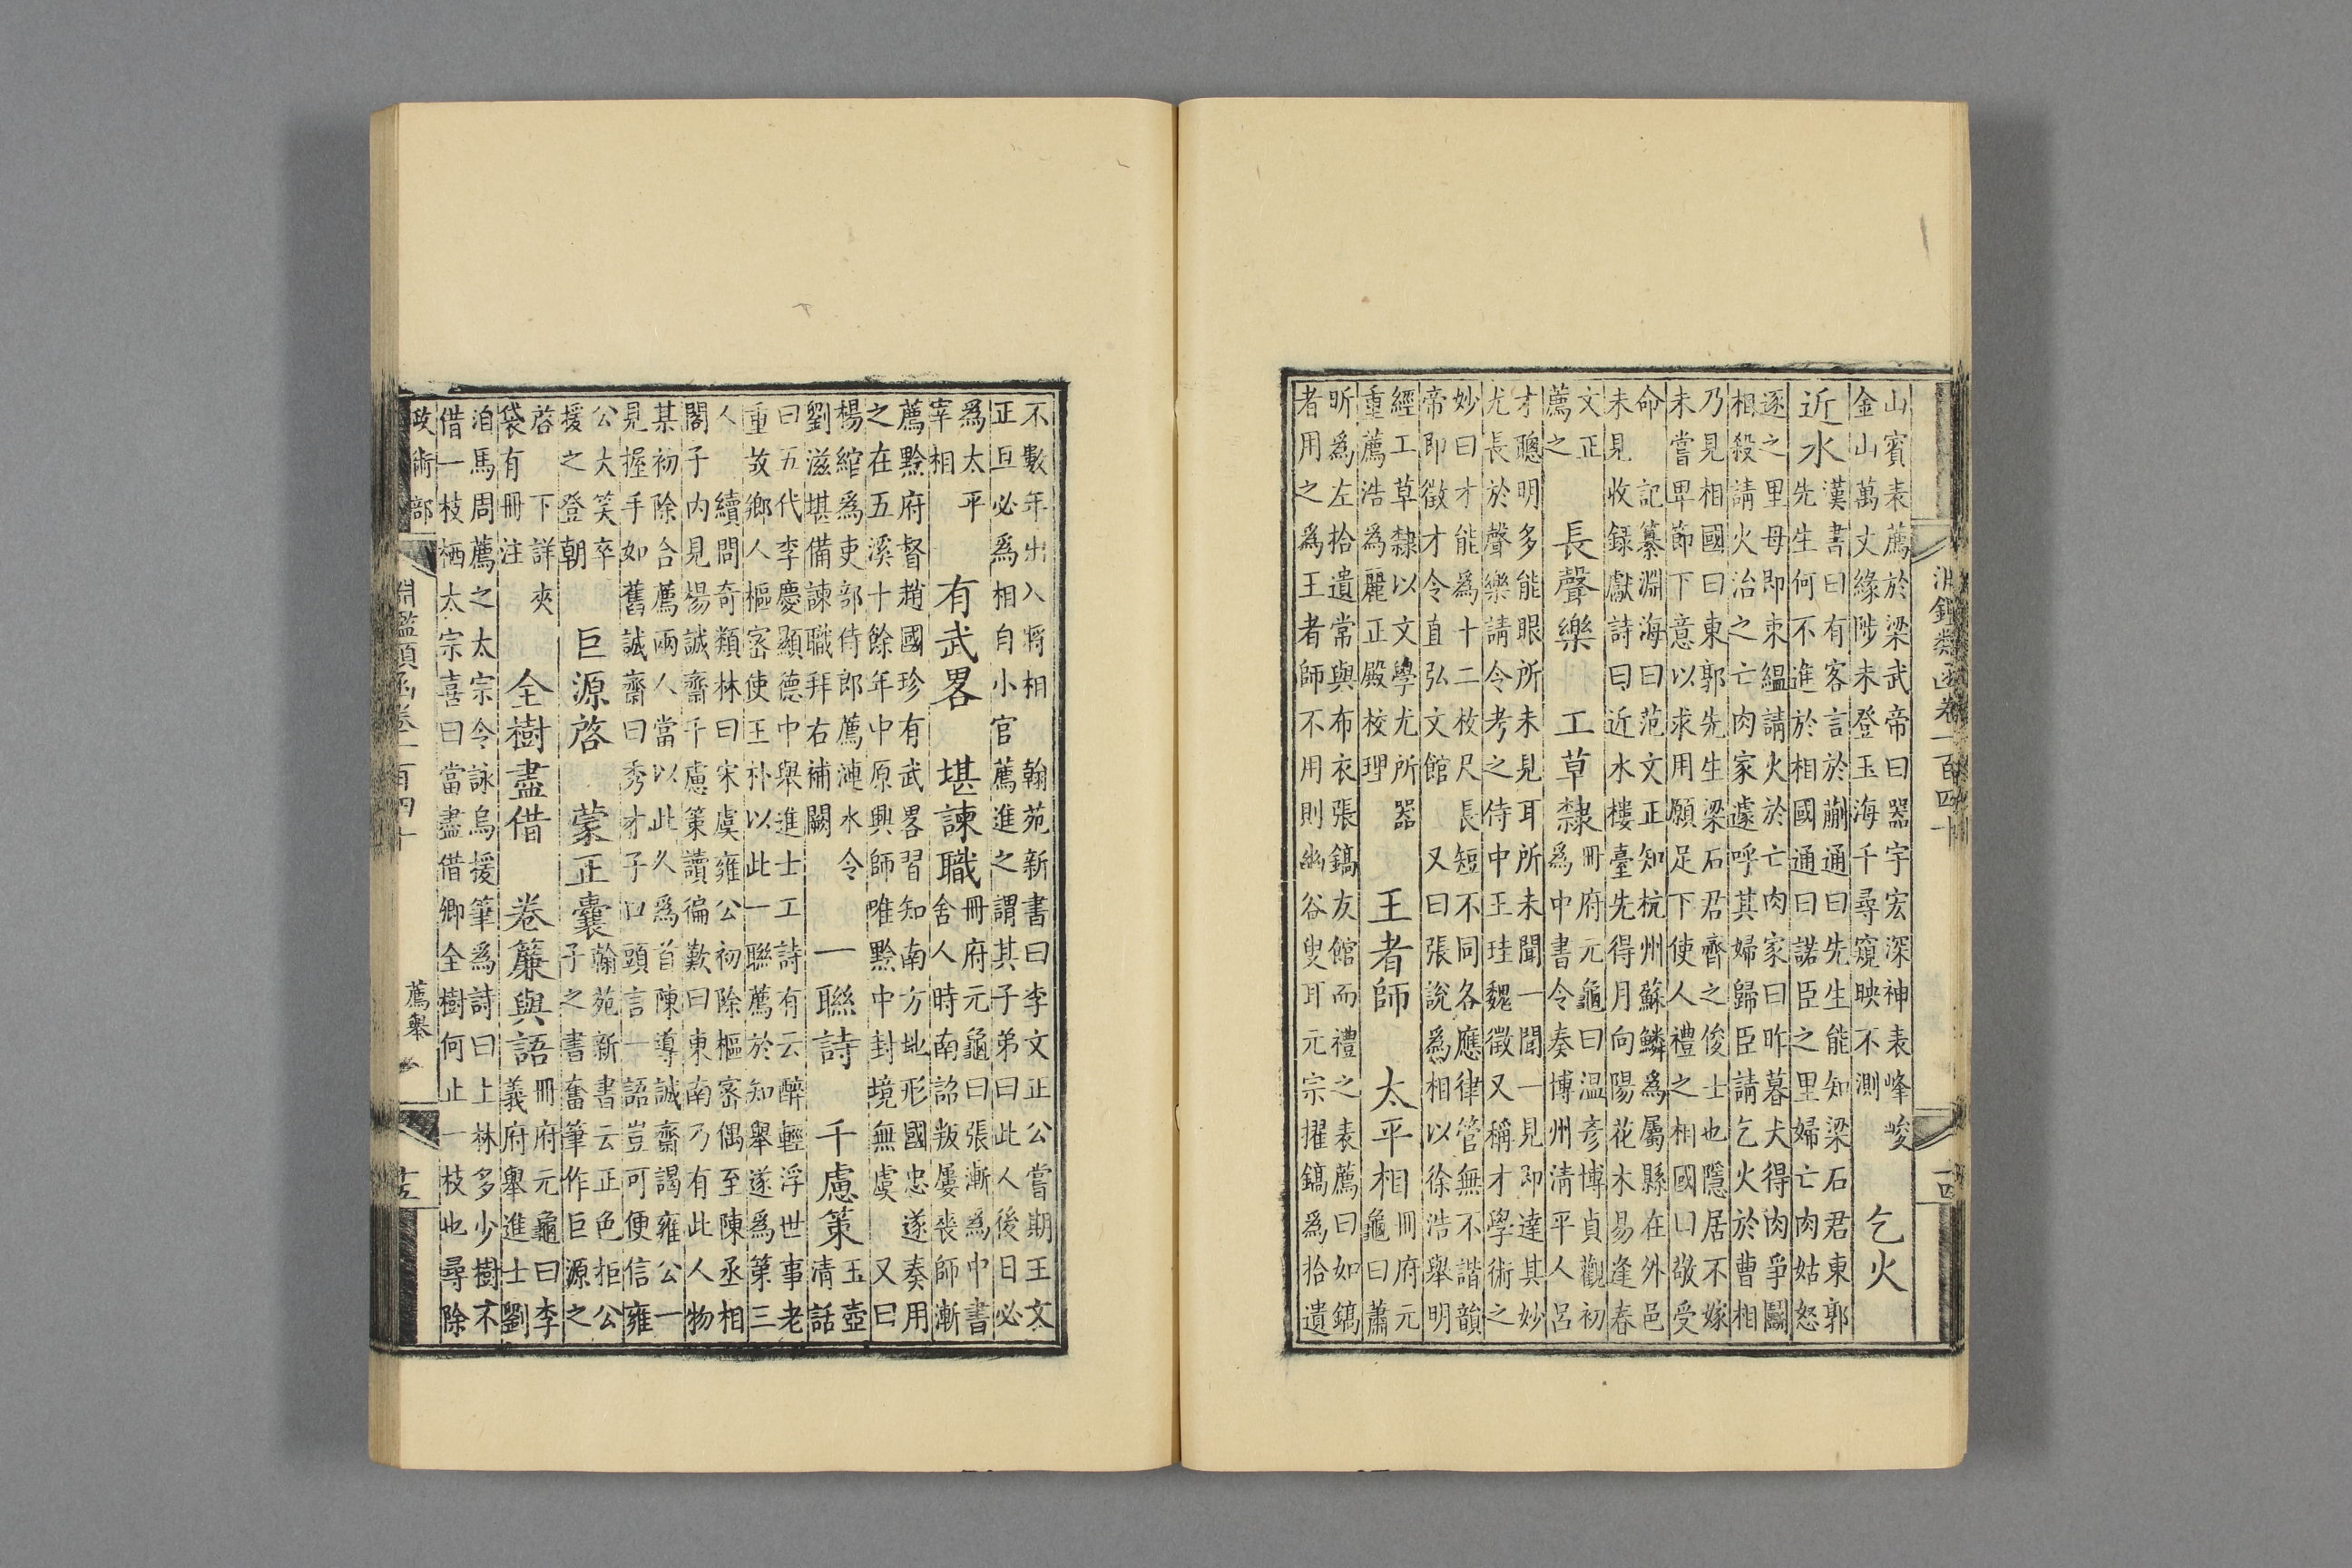 淵鑑類函卷一百四十
十四
山賓表薦於梁武帝曰器宇宏深神表峰峻
金山萬丈緣陟未登玉海千尋窺映不測
乞火
近水
漢書曰有客言於蒯通曰先生能知梁石君東郭
先生何不進於相國通曰諾臣之里婦亡肉姑怒
逐之里母即束縕請火於亡肉家曰昨暮犬得肉爭鬭
相殺請火治之亡肉家遽呼其婦歸臣請乞火於曹相
乃見相國曰東郭先生梁石君齊之俊士也隱居不嫁
未嘗卑節下意以求用願足下使人禮之相國曰敬受
命　記纂淵海曰范文正知杭州蘇鱗爲屬縣在外邑
未見收録獻詩曰近水樓臺先得月向陽花木易逢春
文正
薦之
長聲樂　工草隸
冊府元龜曰温彦博貞觀初
爲中書令奏博州清平人呂
才聰明多能眼所未見耳所未聞一聞一見即達其妙
尤長於聲樂請令考之侍中王珪魏徵又稱才學術之
妙曰才能爲十二枚尺長短不同各應律管無不諧韻
帝即徵才令直弘文館　又曰張說爲相以徐浩舉明
經工草隸以文學尤所器
重薦浩爲麗正殿校理
王者師　太平相
冊府元
龜曰蕭
昕爲左拾遺常與布衣張鎬友館而禮之表薦曰如鎬
者用之爲王者師不用則幽谷叟耳元宗擢鎬爲拾遺
不數年出入將相　翰苑新書曰李文正公嘗期王文
正旦必爲相自小官薦進之謂其子弟曰此人後日必
爲太平
宰相
有武畧　堪諫職
冊府元龜曰張漸爲中書
舍人時南詔叛屢喪師漸
薦黔府督趙國珍有武畧習知南方地形國忠遂奏用
之在五溪十餘年中原興師唯黔中封境無虞　又曰
楊綰爲吏部侍郎薦漣水令
劉滋堪備諫職拜右補闕
一聯詩　千慮策
玉壺
清話
曰五代李慶顯德中舉進士工詩有云醉輕浮世事老
重故鄉人樞密使王朴以此一聯薦於知舉遂爲第三
人　續問奇類林曰宋虞雍公初除樞密偶至陳丞相
閣子内見楊誠齋千慮策讀徧歎曰東南乃有此人物
某初除合薦兩人當以此久爲首陳導誠齋謁雍公一
見握手如舊誠齋曰秀才子口頭言一語豈可便信雍
公大笑卒
援之登朝
巨源啓　蒙正囊
翰苑新書云正色拒公
子之書奮筆作巨源之
啓　下詳夾
袋有冊注
全樹盡借　卷簾與語
冊府元龜曰李
義府舉進士劉
洎馬周薦之太宗令詠烏援筆爲詩曰上林多少樹不
借一枝栖太宗喜曰當盡借卿全樹何止一枝也尋除
政術部
淵鑑類函卷一百四十
薦舉
十五